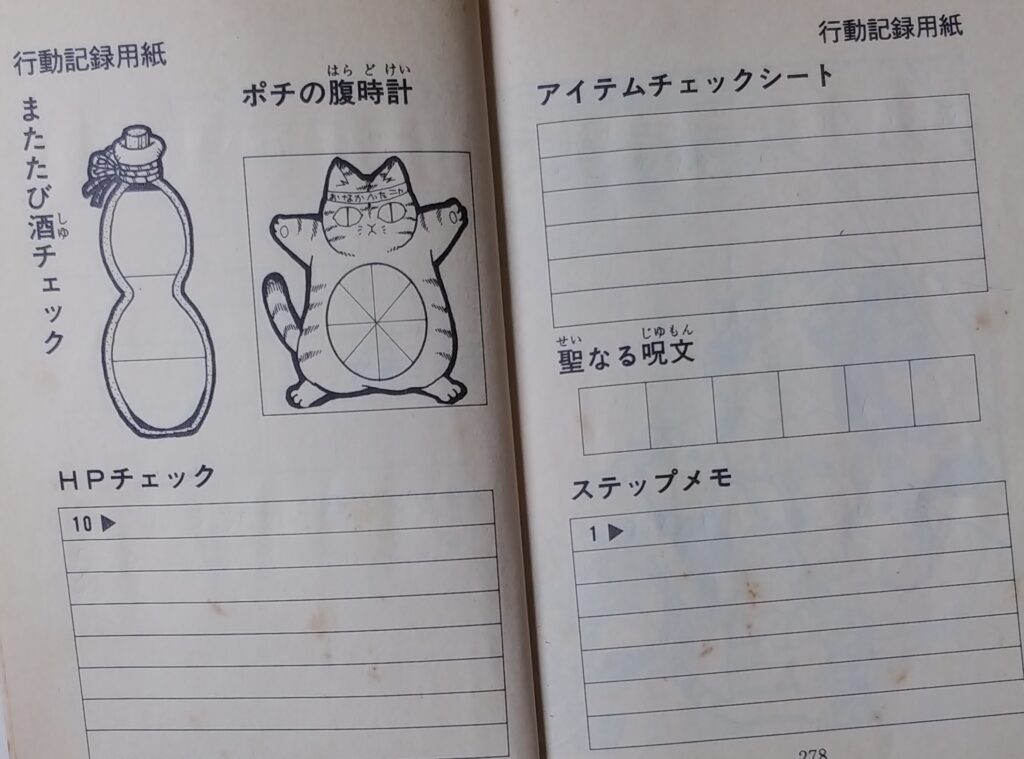 行動記録用紙
またたび酒チェック
しゅ
ポチの腹時計
はらどけい
おなかがへったニャー
HPチェック
10▶
行動記録用紙
アイテムチェックシート
聖なる呪文
せい じゅもん
ステップメモ
1▶
278